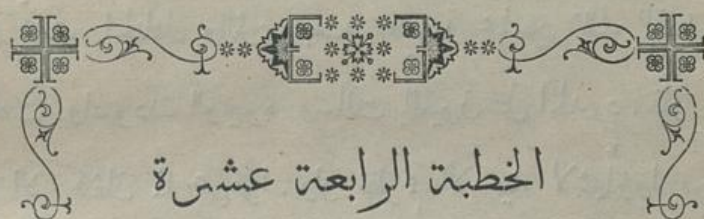 الخطبة الرابعة عشرة